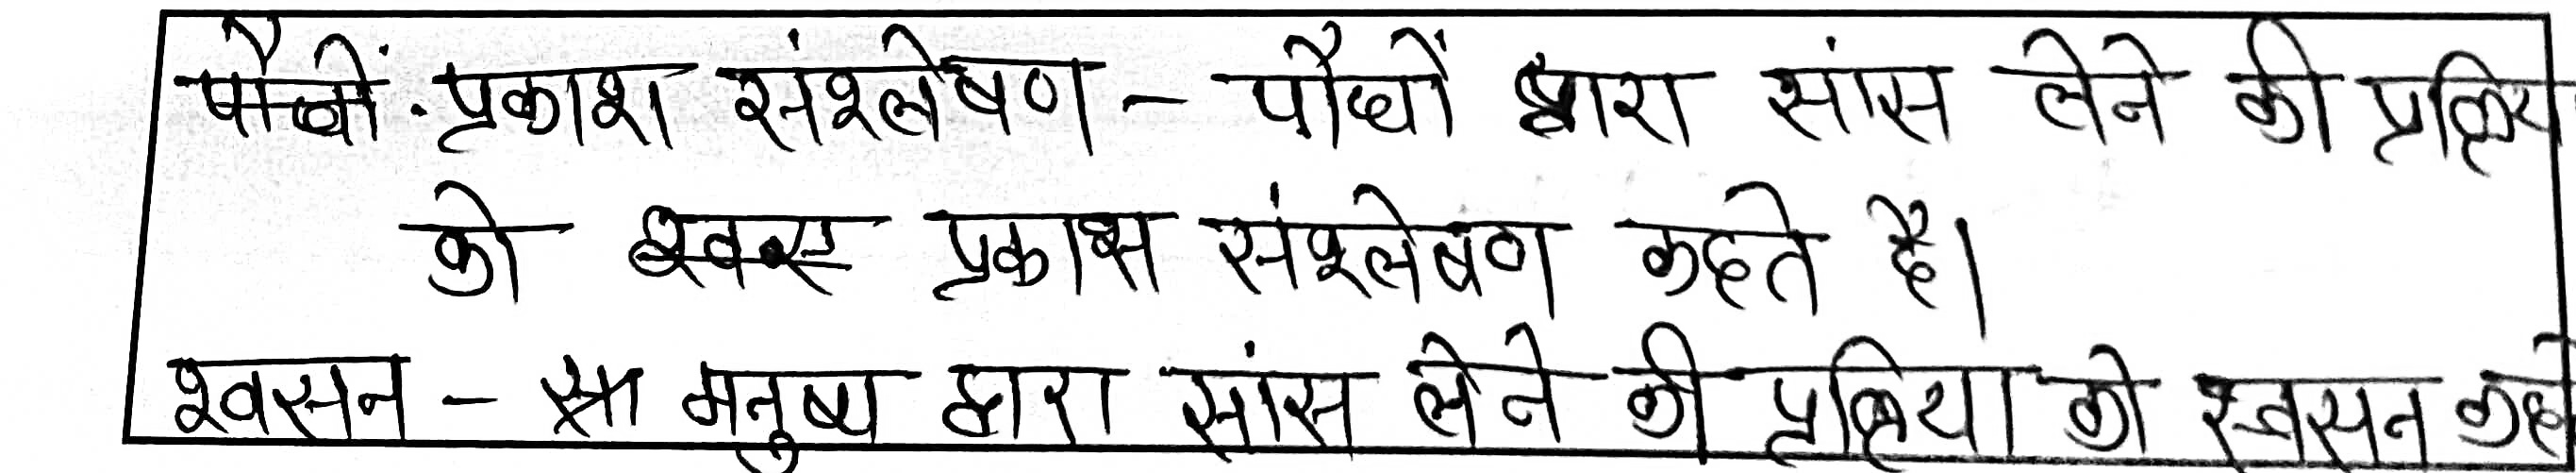 प्रकाश संश्लेषण - पौधों द्वारा सांस लेने की प्रक्रिय
को प्रकाश संश्लेषण कहते है।
श्वसन - मनुष्य द्वारा सांस लेने की प्रक्रिया को श्वसन कहते